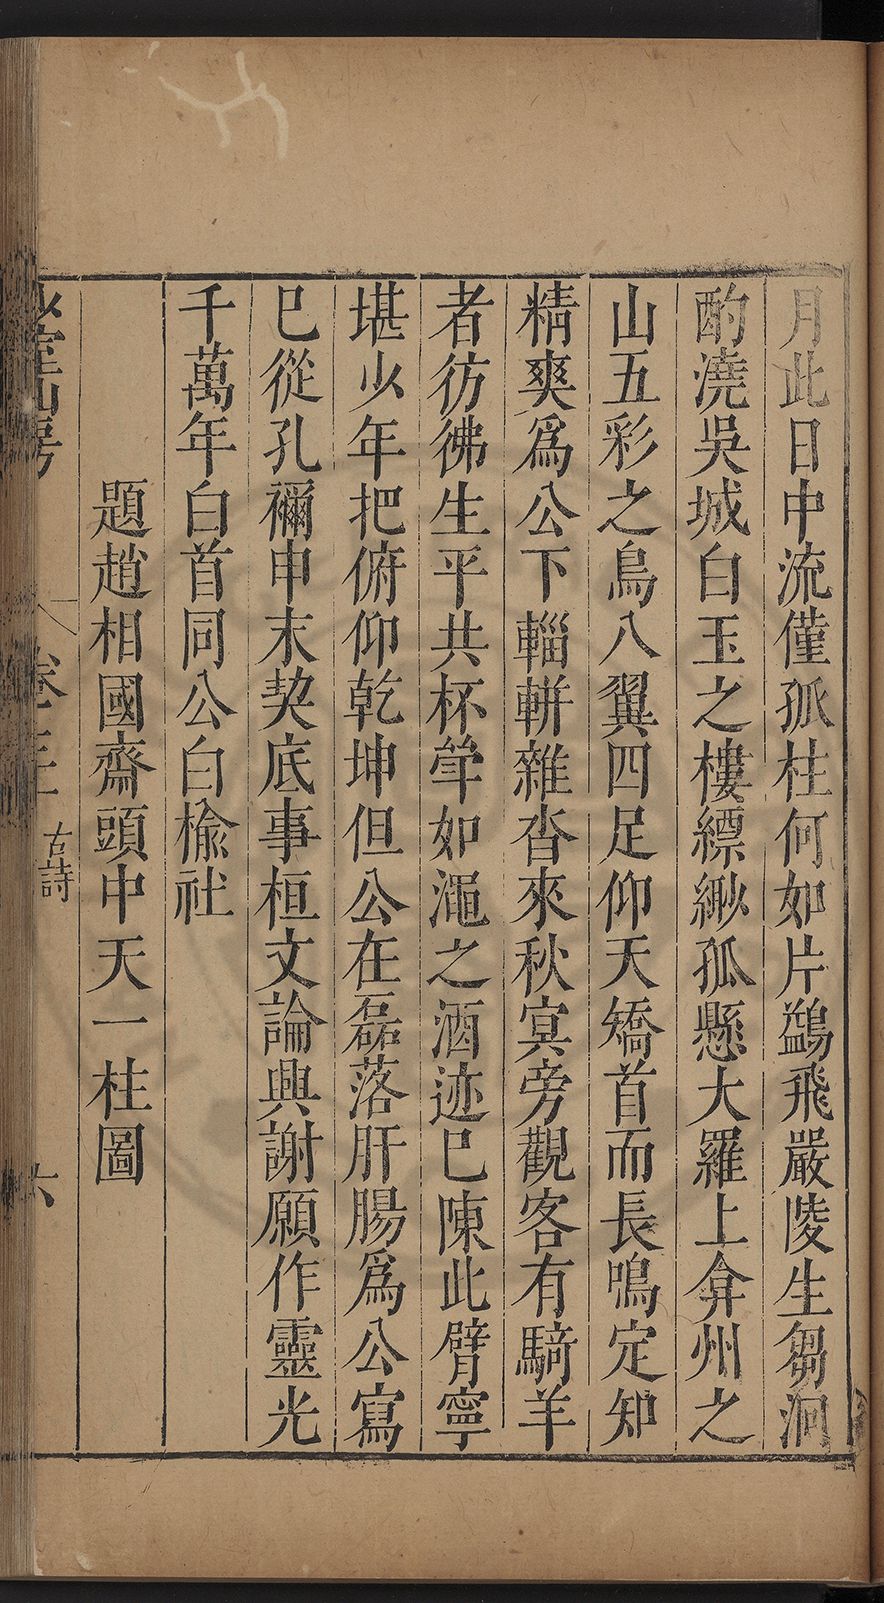 月此日中流僅孤柱何如片鷁飛嚴陵生芻泂
酌澆吳城白玉之樓縹緲孤懸大羅上弇州之
山五彩之鳥八翼四足仰天矯首而長鳴定知
精爽爲公下輜軿雜沓來秋冥旁觀客有騎羊
者彷彿生平共杯斚如澠之酒迹巳陳此臂寧
堪少年把俯仰乾坤但公在磊落肝腸爲公寫
巳從孔禰申末契底事桓文論興謝願作靈光
千萬年白首同公白榆社
題趙相國齋頭中天一柱圖
少室山房
卷二三
古詩
六